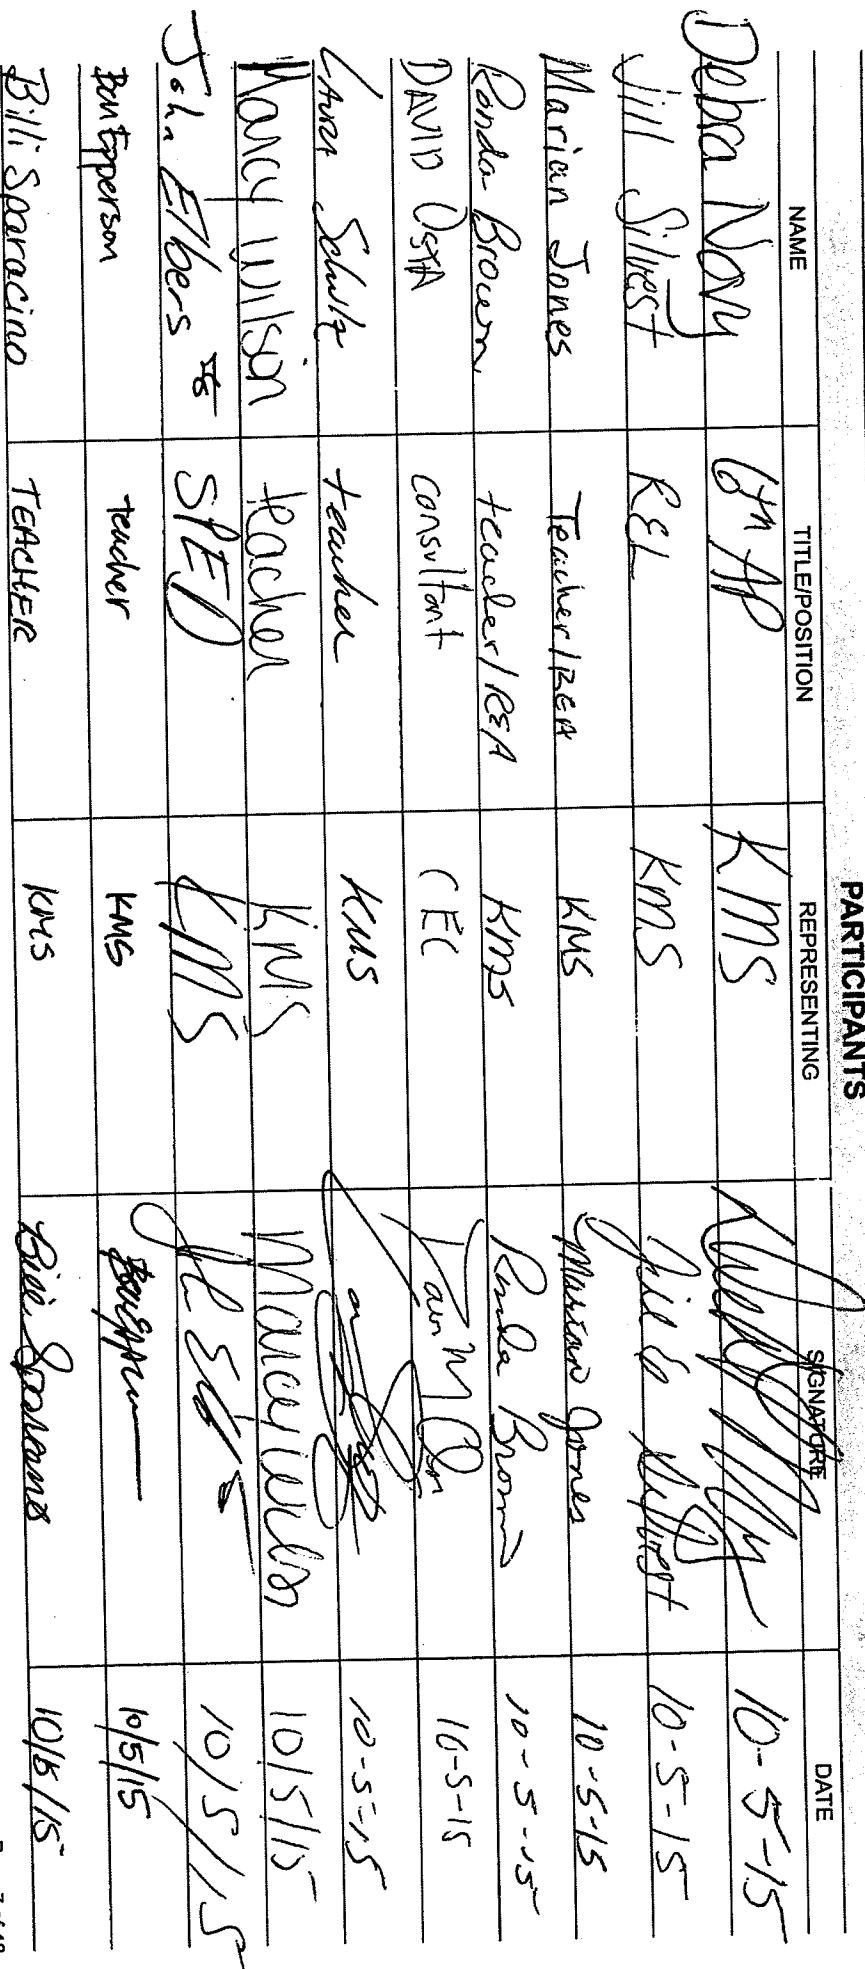 PARTICIPANTS
NAME TITLE/POSITION REPRESENTING SIGNATURE DATE
Debra Novy 6th AP KMS 10-5-15
Jill Silvest REL KMS 10-5-15
Marian Jones Teacher/BEA KMS Marian Jones 10-5-15
Ronda Brown teacher/REA KMS Ronda Brown 10-5-15
DAVID OSTA consultant CEC 10-5-15
Laura Schulz teacher KMS 10-5-15
Marcy Wilson teacher KMS 10/5/15
John Elbers SPED KMS 10/5/15
Epperson teacher KMS 10/5/15
Billi Sparacino TEACHER KMS 10/5/15